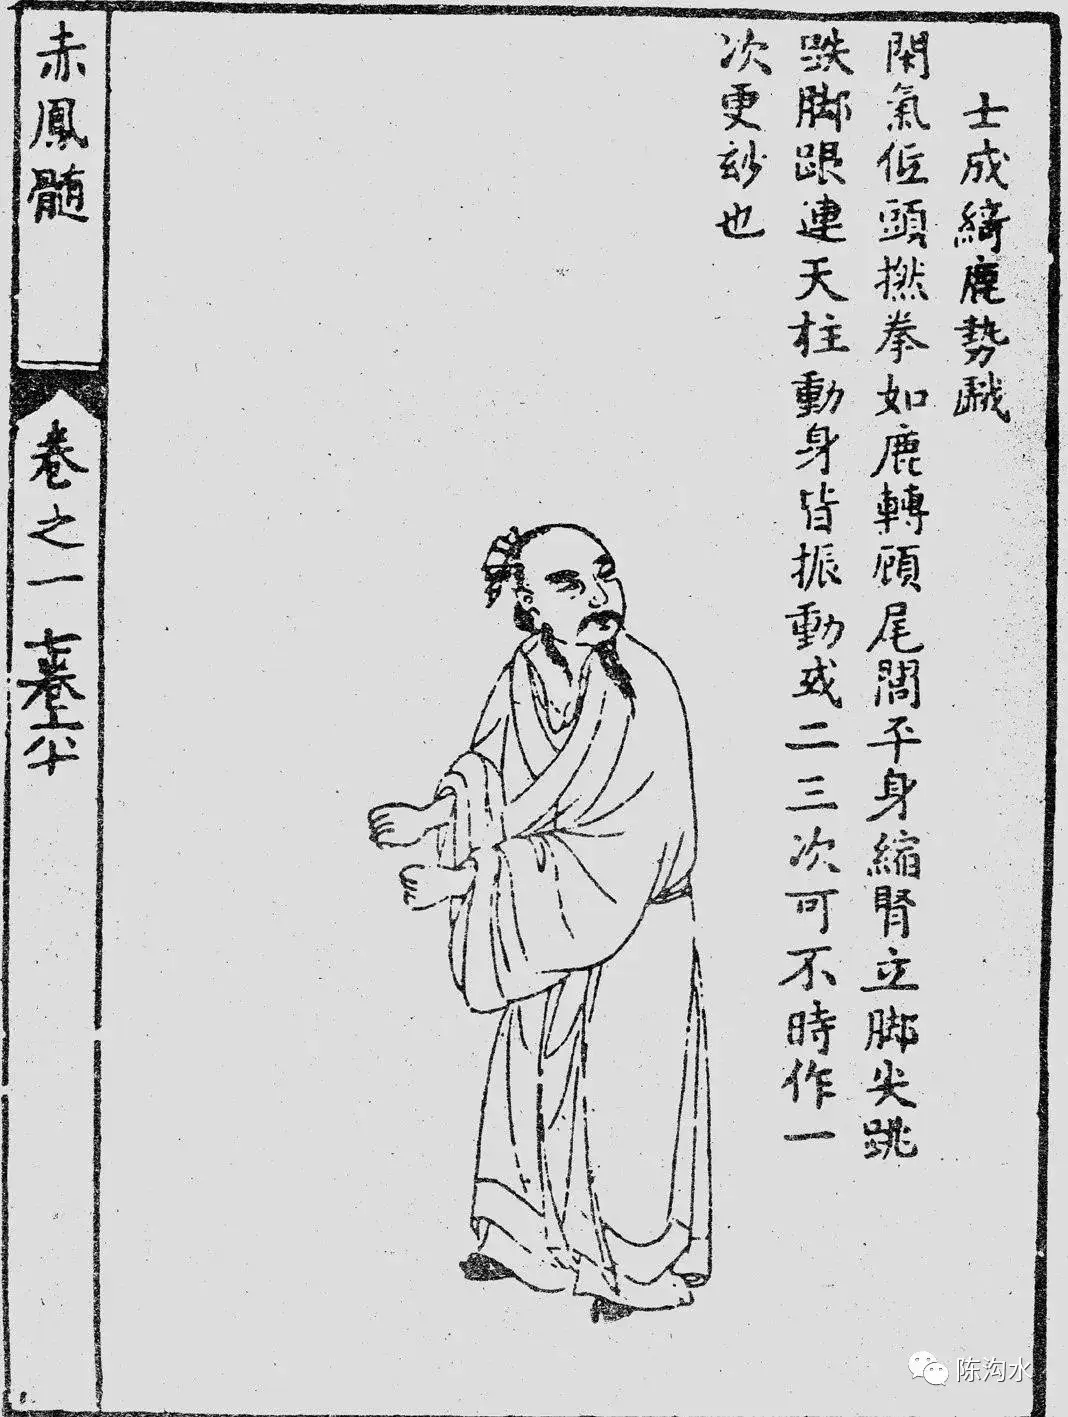 士成綺鹿勢戲
閉氣低頭撚拳如鹿轉顧尾閭平身縮腎立脚尖跳
跌脚跟連天柱動身皆振動或二三次可不時作一
次更妙也
赤鳳髓
卷之一
陈沟水